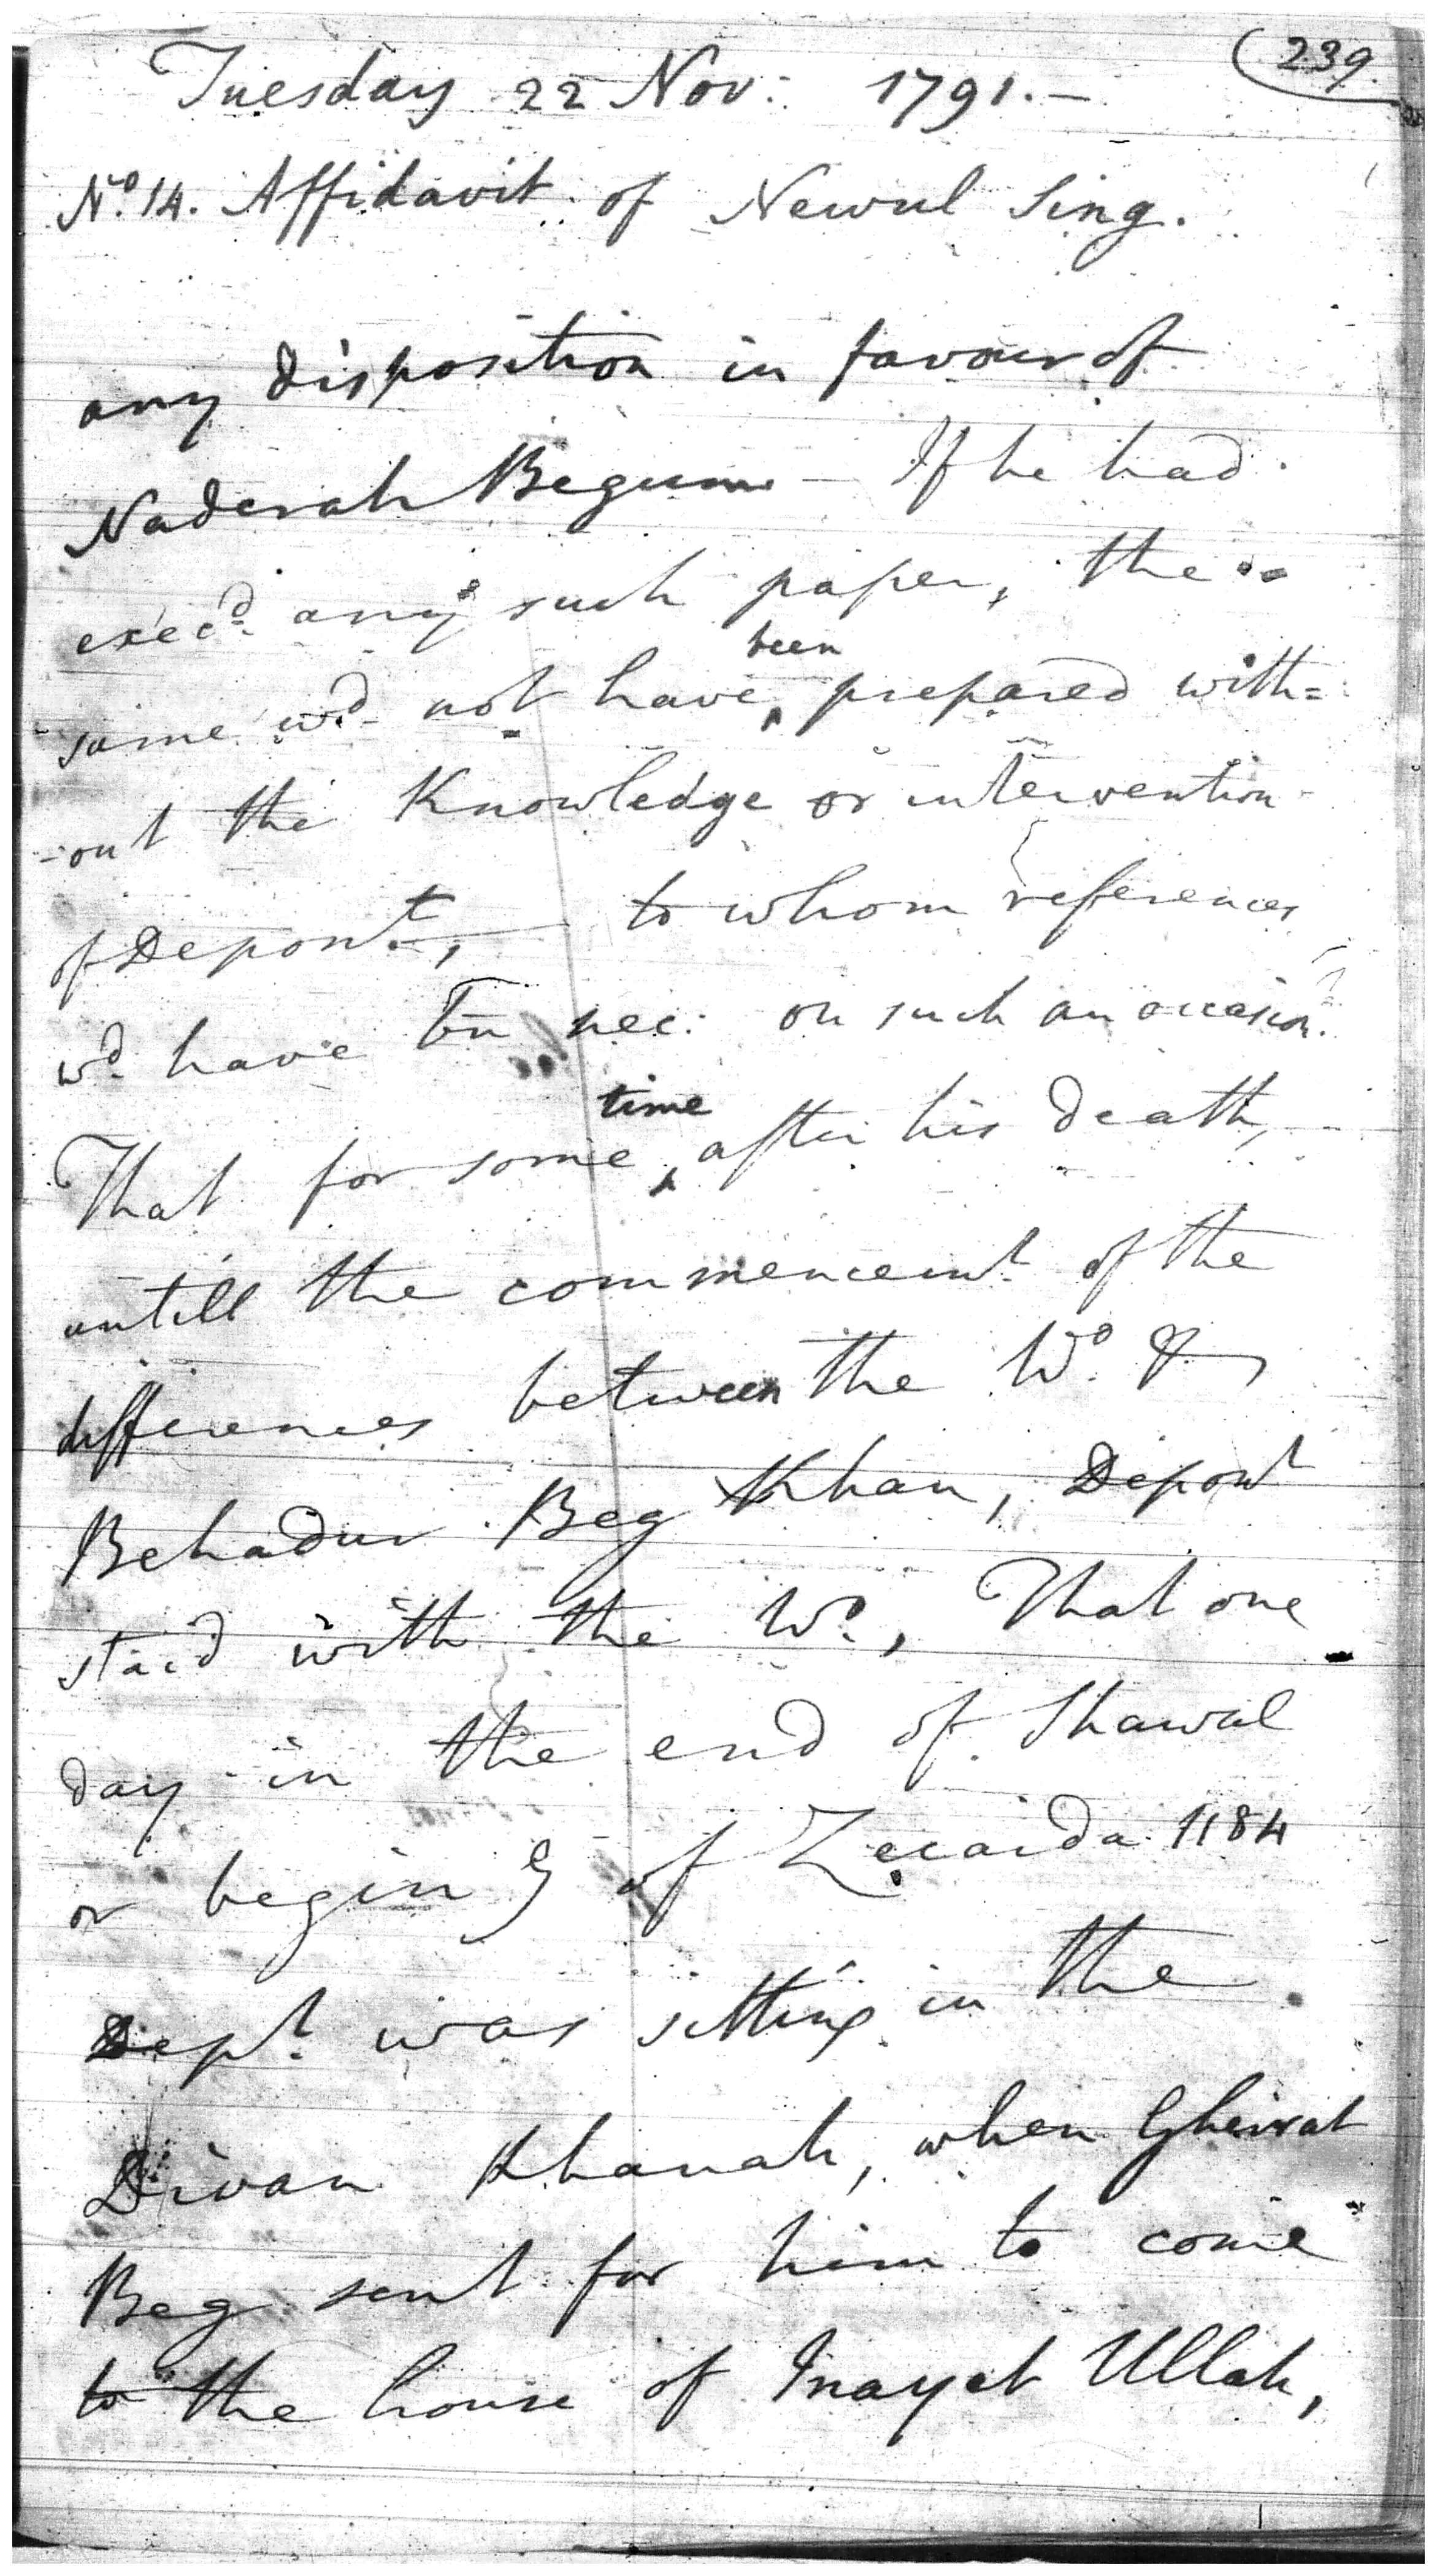 239.
Tuesday 22 Nov: 1791.-
No. 14. Affidavit of Newul Sing.
any disposition in favour of
Naderah Begum - If he had
execd. any such paper, the =
same wd. not have been prepared with=
-out the Knowledge or intervention
of Depont., to whom references
wd. have bn nec: on such an occasion.
That for some time after his death,
untill the commencemt. of the
differences between the Wo. &
Behadur Beg Khan, Depont
staid with the Wo., That one
day in the end of Shawal
or beging of Zecaida 1184
Dept. was sitting in the
Divan Khanah, when Gheirat
Beg sent for him to come
to the house of Inayet Ullah,